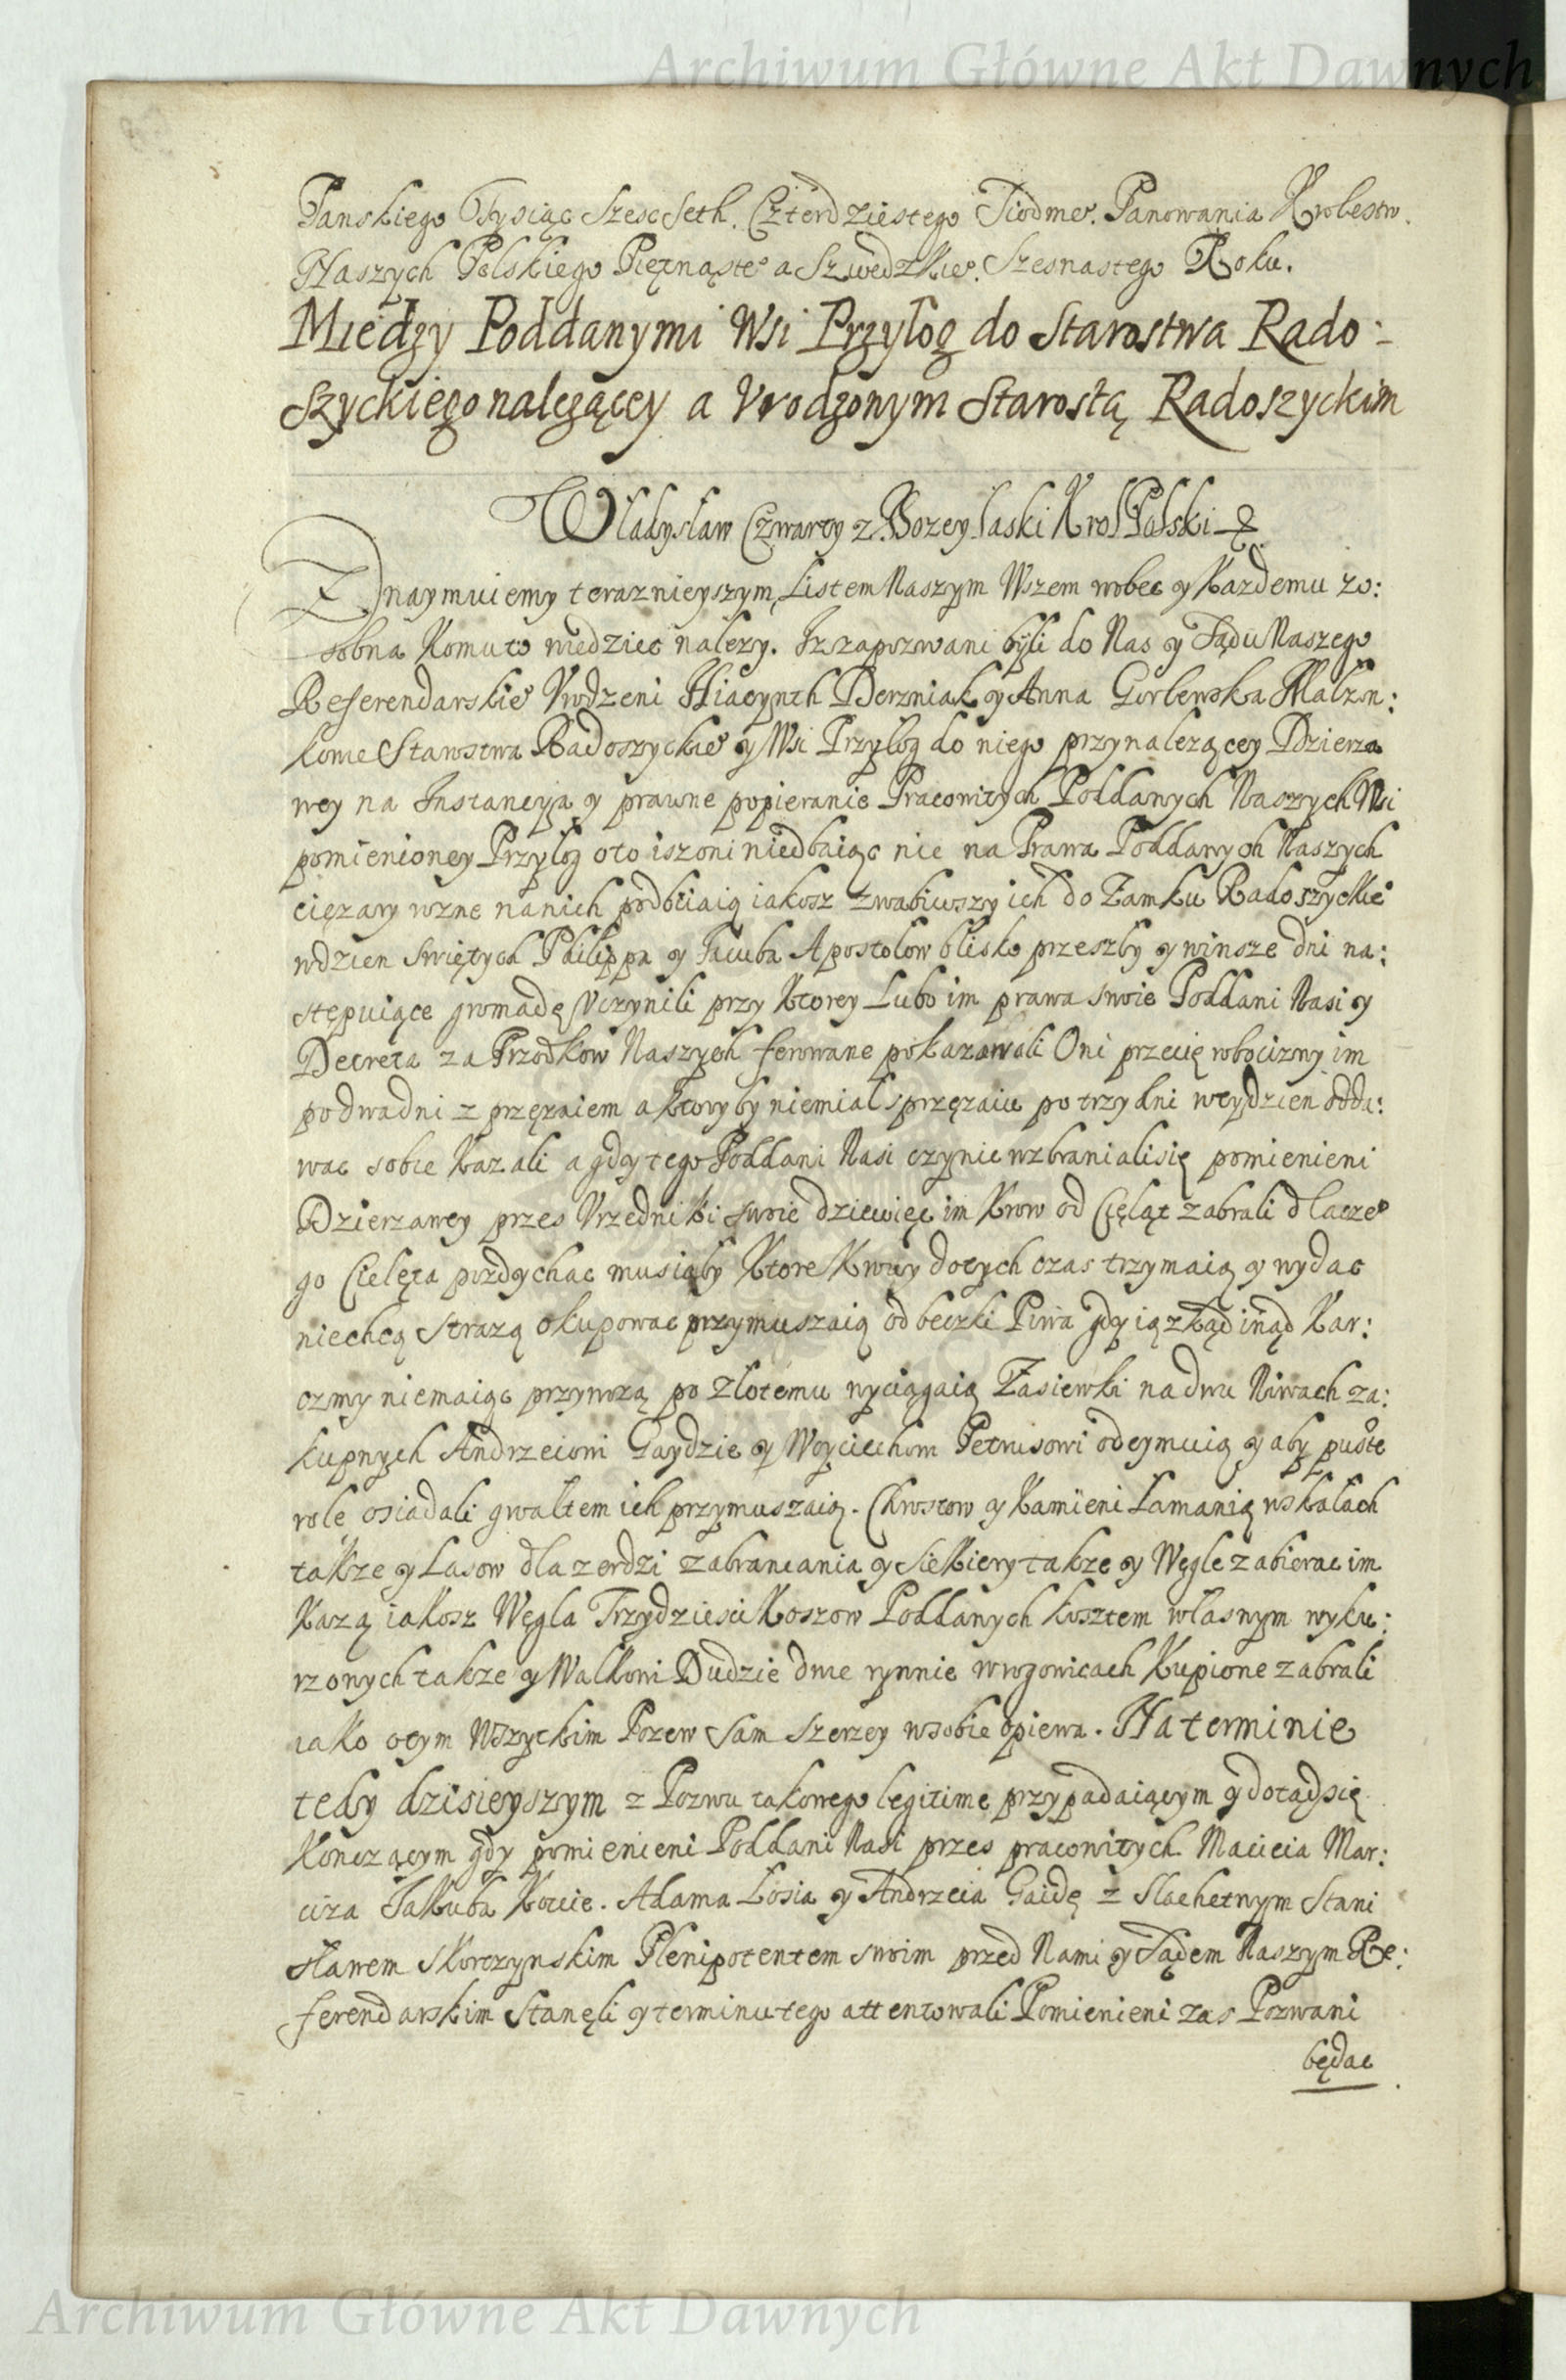 Archiwum Główne Akt Dawnych
Panskiego Tysiąc Szesc Seth. Czterdziestego Siodme°. Panowania Krolestw.
Naszych Polskiego Pięṭnąste° a Szwedzkie°. Szesnastego Roku.
Między Poddanymi Wsi Przyłog do Starostwa Rado:
szyckiego nalezącey a Vrodzonym Starostą Radoszyckim
Władysław Czwarty z Bozey łaski Krol Polski &
Znaymuiemy terazniejszym Listem Naszym Wszem wobec y Kazdemu zo:
sobna Komu to wiedziec nalezy. Iz zapozwani byli do Nas y Sądu Naszego
Referendarskie° Vrodzeni Hiacynth Derzniak y Anna Gorlewska Małzon:
kowie Starostwa Radoszyckie° y Wsi Przyłog do niego przynalezącey Dzierza
wcy na Instancyją y prawne popieranie Pracowitych Poddanych Naszych Wsi
pomienioney Przyłog oto isz oni niedbaiąc nic na Prawa Poddanych Naszych
ciężary rozne na nich podbiiaią iakosz zwabiwszy ich do Zamku Radoszyckie°
w dzien Swiętych Philippa y Jacuba Apostołow blisko przeszły y w insze dni na:
stępuiące gromadę Vczynili przy Ktorey Lubo im prawa swoie Poddani Nasi y
Decreta za Przodkow Naszych ferowane pokazowali Oni przecię robocizny im
po dwa dni z przęzaiem a ktory by niemiał sprzęzaiu po trzy dni w tydzien odda:
wac sobie Kazali a gdy tego Poddani Nasi czynic wzbraniali się pomienieni
Dzierzawcy przes Vrzedniki swoie dziewięc im Krow od Cieląt zabrali dlacze°
go Cielęta pozdychac musiały Ktore Krowy dotych czas trzymaią y wydac
niechcą strazą okupowac przymuszaią od beczki Piwa gdy ią zkąd inąd Kar:
czmy niemaiąc przywozą po złotemu wyciągaią Zasiewki na dwu Niwach za:
kupnych Andrzeiowi Gaydzie y Woyciechowi Petrusowi odeymuią y aby puste
role osiadali gwałtem ich przymuszaią. Chrostow y Kamieni Łamanią w skałach
takze y Lasow dla zerdzi zabraniania y Siekiery takze y Węgle zabierac im
Kazą iakosz Węgla Trzydziesci Koszow Poddanych kosztem własnym wyku:
rzonych takze y Walkowi Dudzie dwie rynnie w rogowicach Kupione zabrali
iako o tym Wszytkim Pozew Sam szerzey w sobie opiewa. Na terminie
tedy dzisieyszym z Pozwu takowego legitime przypadaiącym y dotąd się
Konczącym gdy pomienieni Poddani Nasi przes pracowitych Macieia Mar:
cisza Jakuba Kowie. Adama Łosia y Andrzeia Gaidę z Slachetnym Stani
sławem Skorczynskim Plenipotentem swoim przed Nami y Sądem Naszym Re:
ferendarskim Stanęli y terminu tego attentowali Pomienieni zas Pozwani
będac
Archiwum Główne Akt Dawnych